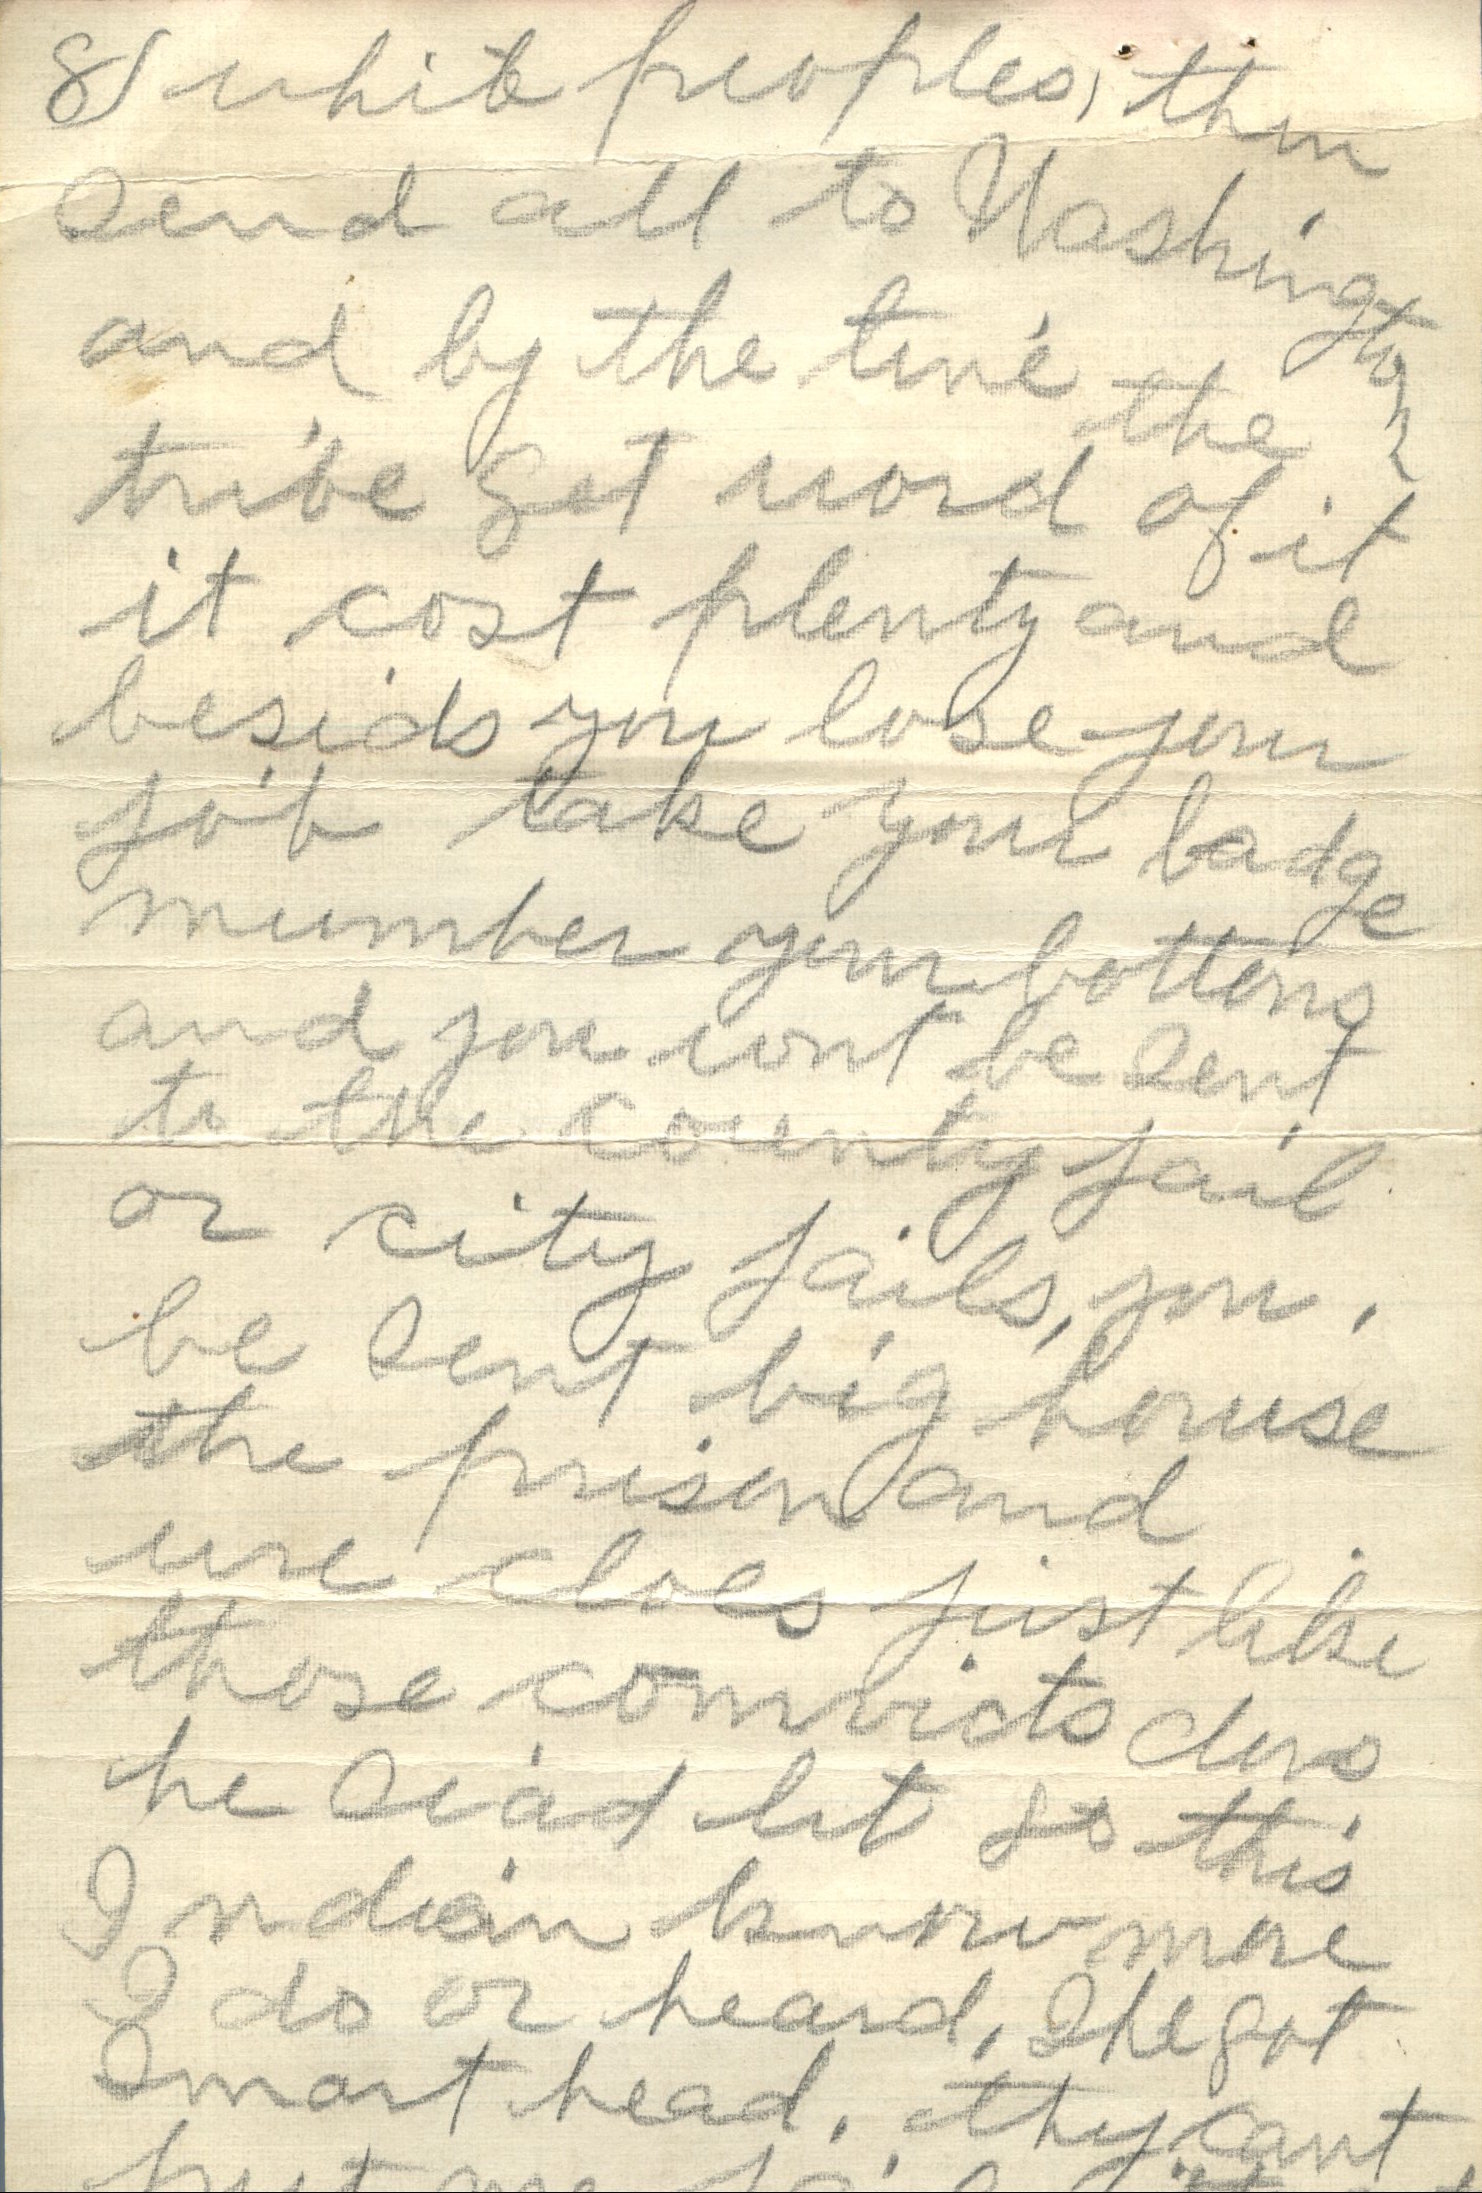 8) white peoples, then
send all to Washington
and by the time the
tribe get word of it
it cost plenty and
besids you lose your
job take your badge
mumber your bottons
and you wont be sent
to the county jail
or city jails, you.
be sent big house
the prison and
use cloes just like
those convicts dons
he siad let go this
Indian know more
I do or heard, She got
Smart head. they cant
put me